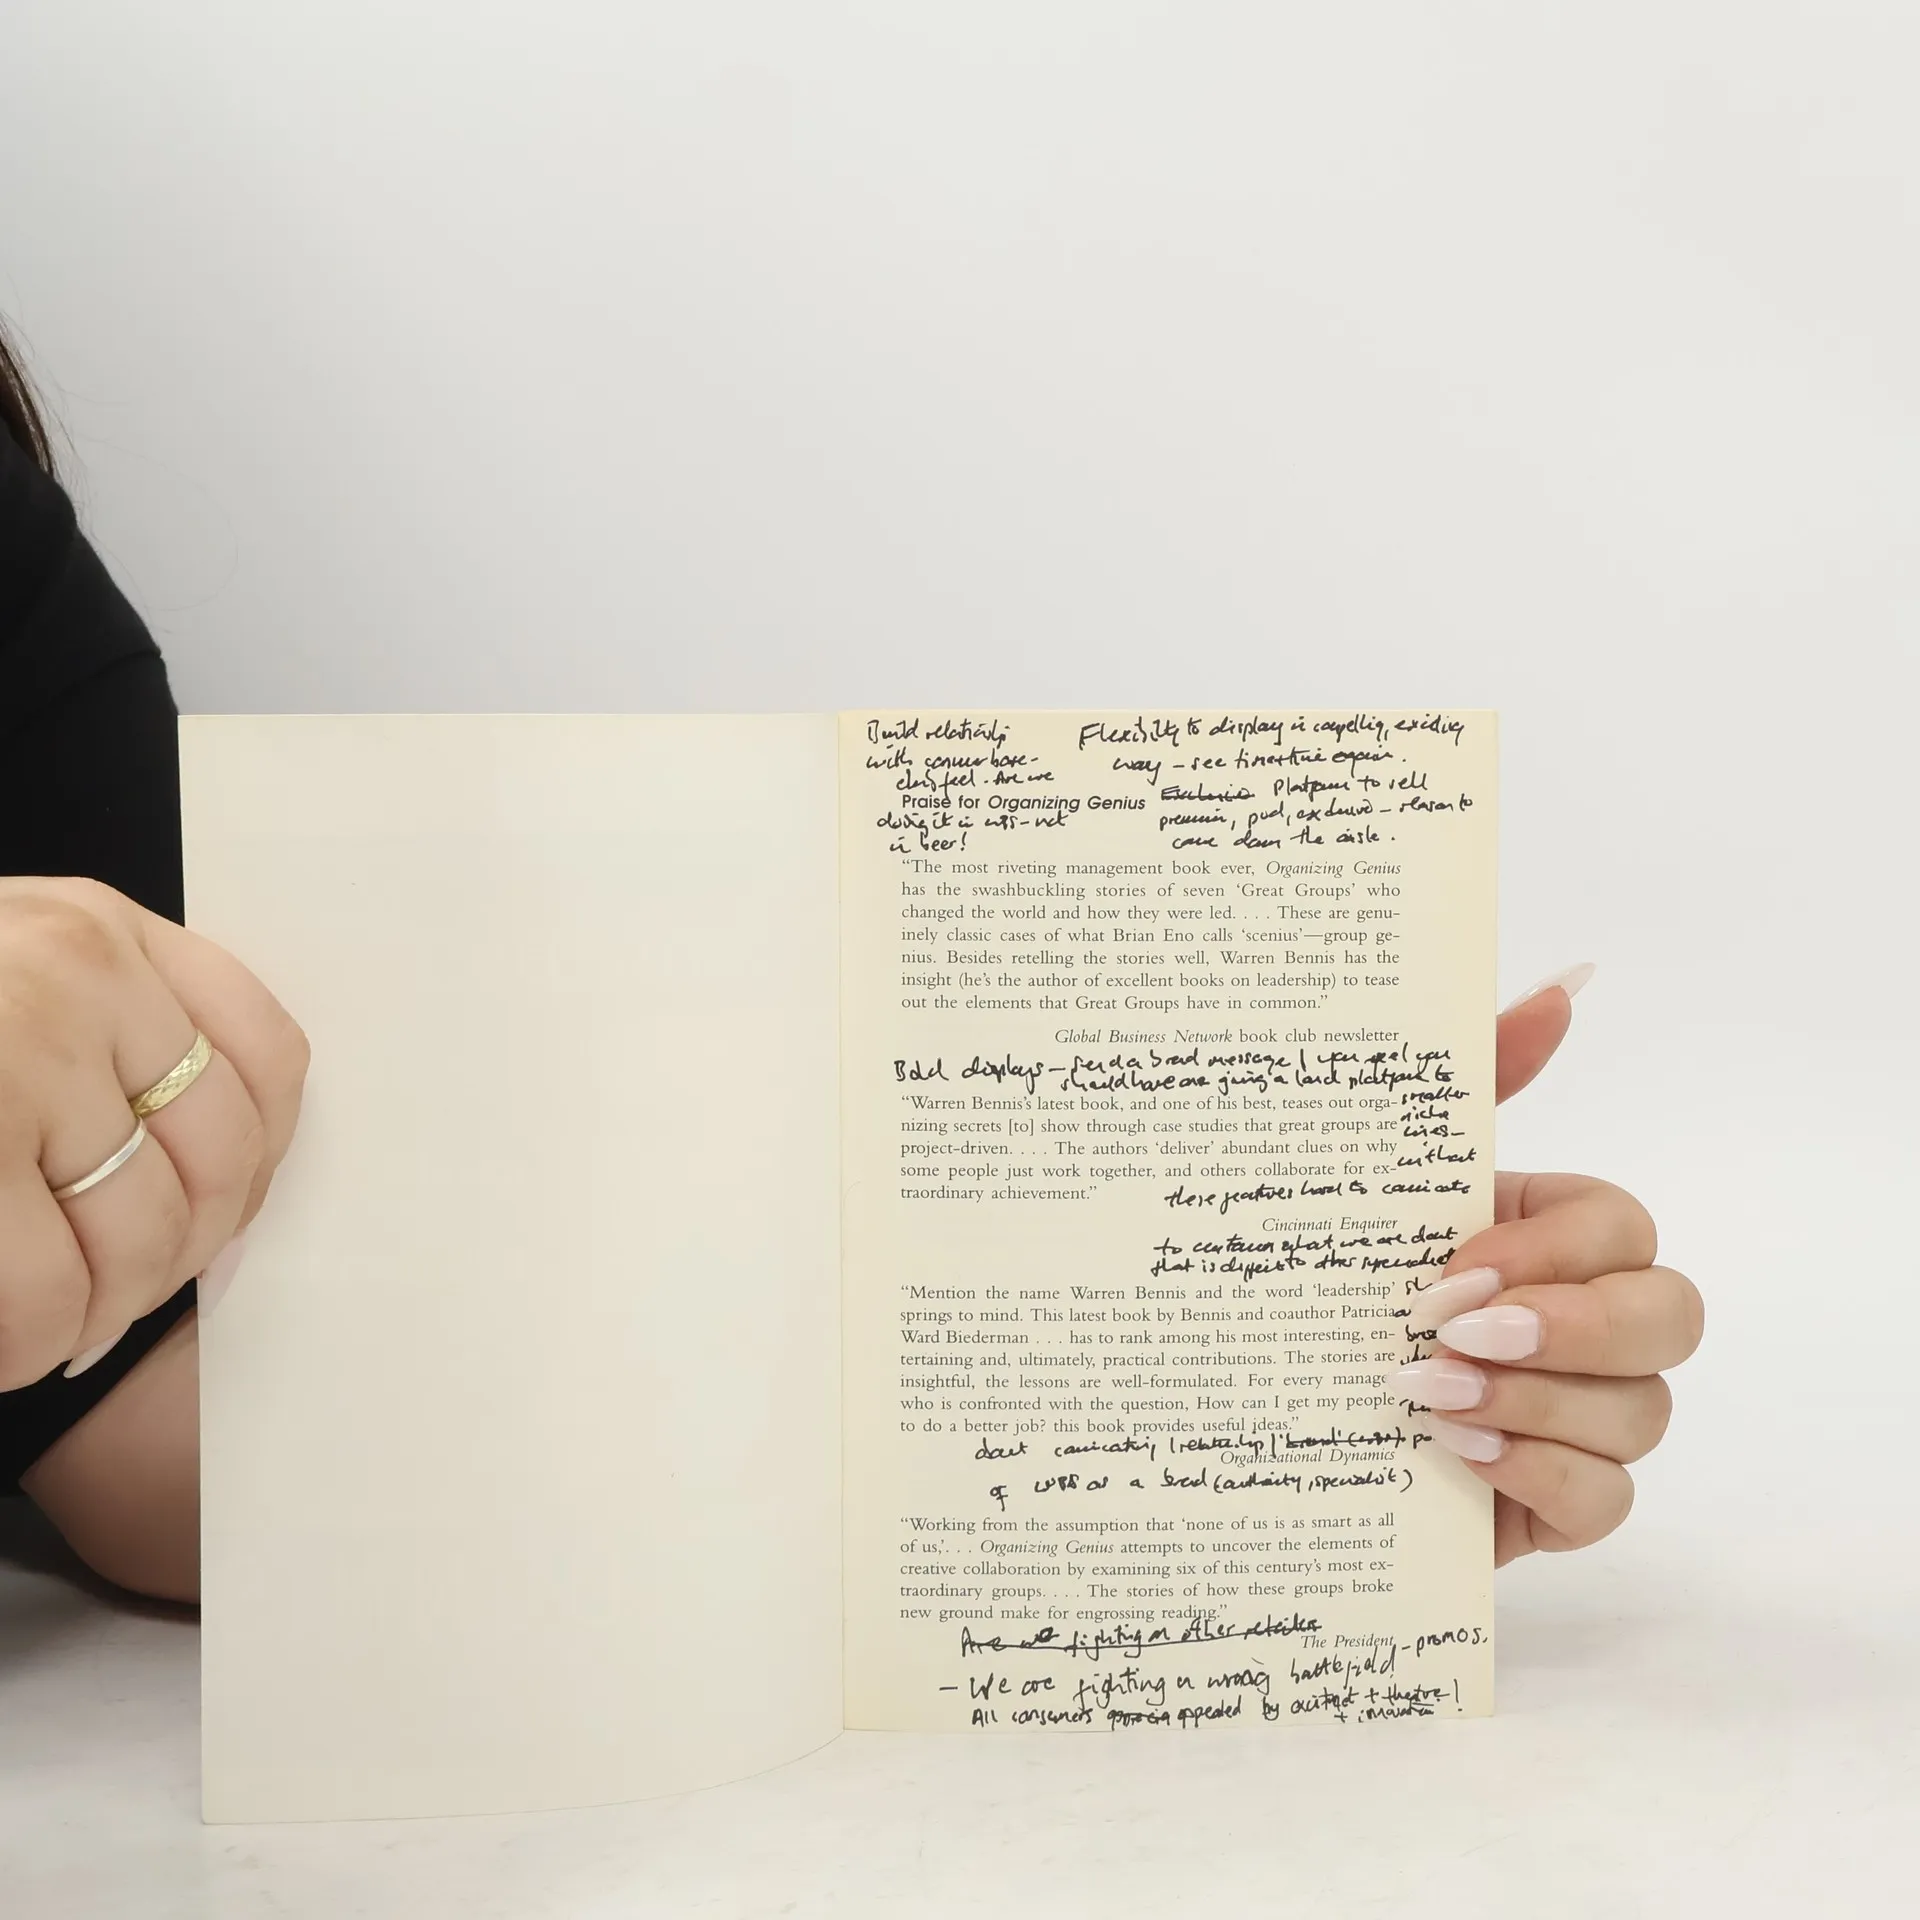 Build
with
feel. Are we
Flexibility to display in
way – see
Platform to sell
premium, exclusive – reason to
come down the aisle.
Praise for Organizing Genius
doing it in – not
in beer!
“The most riveting management book ever, Organizing Genius
has the swashbuckling stories of seven ‘Great Groups’ who
changed the world and how they were led. . . . These are genu-
inely classic cases of what Brian Eno calls ‘scenius’—group ge-
nius. Besides retelling the stories well, Warren Bennis has the
insight (he’s the author of excellent books on leadership) to tease
out the elements that Great Groups have in common.”
Global Business Network book club newsletter
Bold displays – send a message / you feel you
should have are giving a platform to
smaller
niche
lines –
without
“Warren Bennis’s latest book, and one of his best, teases out orga-
nizing secrets [to] show through case studies that great groups are
project-driven. . . . The authors ‘deliver’ abundant clues on why
some people just work together, and others collaborate for ex-
traordinary achievement.”
these features hard to
Cincinnati Enquirer
to what we are about
that is different to other
“Mention the name Warren Bennis and the word ‘leadership’
springs to mind. This latest book by Bennis and coauthor Patricia
Ward Biederman . . . has to rank among his most interesting, en-
tertaining and, ultimately, practical contributions. The stories are
insightful, the lessons are well-formulated. For every manage
who is confronted with the question, How can I get my people
to do a better job? this book provides useful ideas.”
Organizational Dynamics
of as a brand (authority, specialist)
“Working from the assumption that ‘none of us is as smart as all
of us,’. . . Organizing Genius attempts to uncover the elements of
creative collaboration by examining six of this century’s most ex-
traordinary groups. . . . The stories of how these groups broke
new ground make for engrossing reading.”
Are we fighting on other retailers
The President
– We are fighting on wrong battlefield – promos.
All consumers appealed by excitement + theatre!
+ innovation